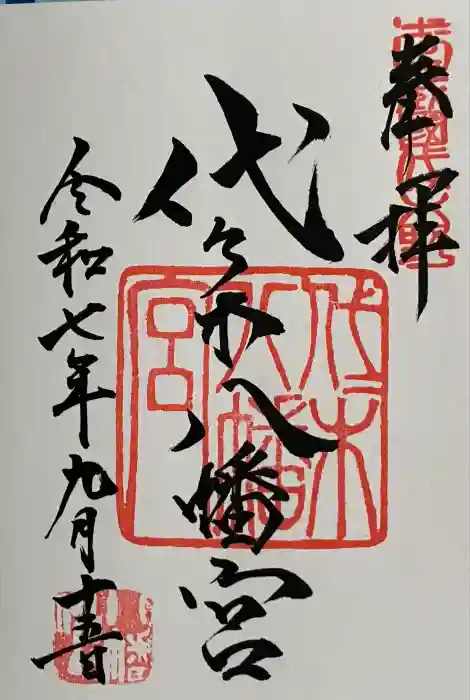 奉拝
代々木八幡宮
令和七年九月十五日
代々木
八幡
宮